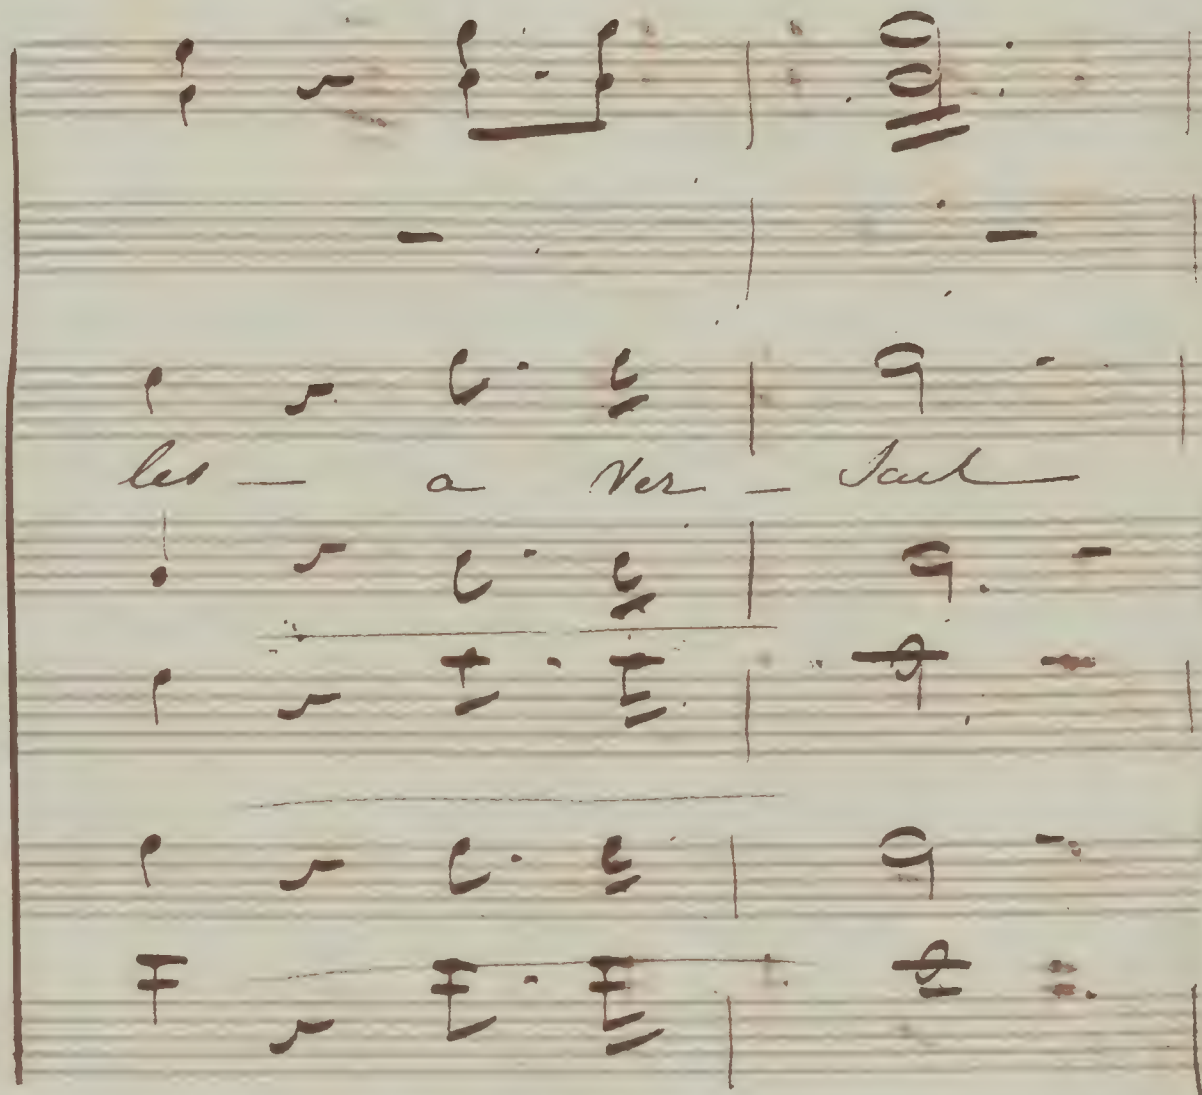 les — a Ver — sail —